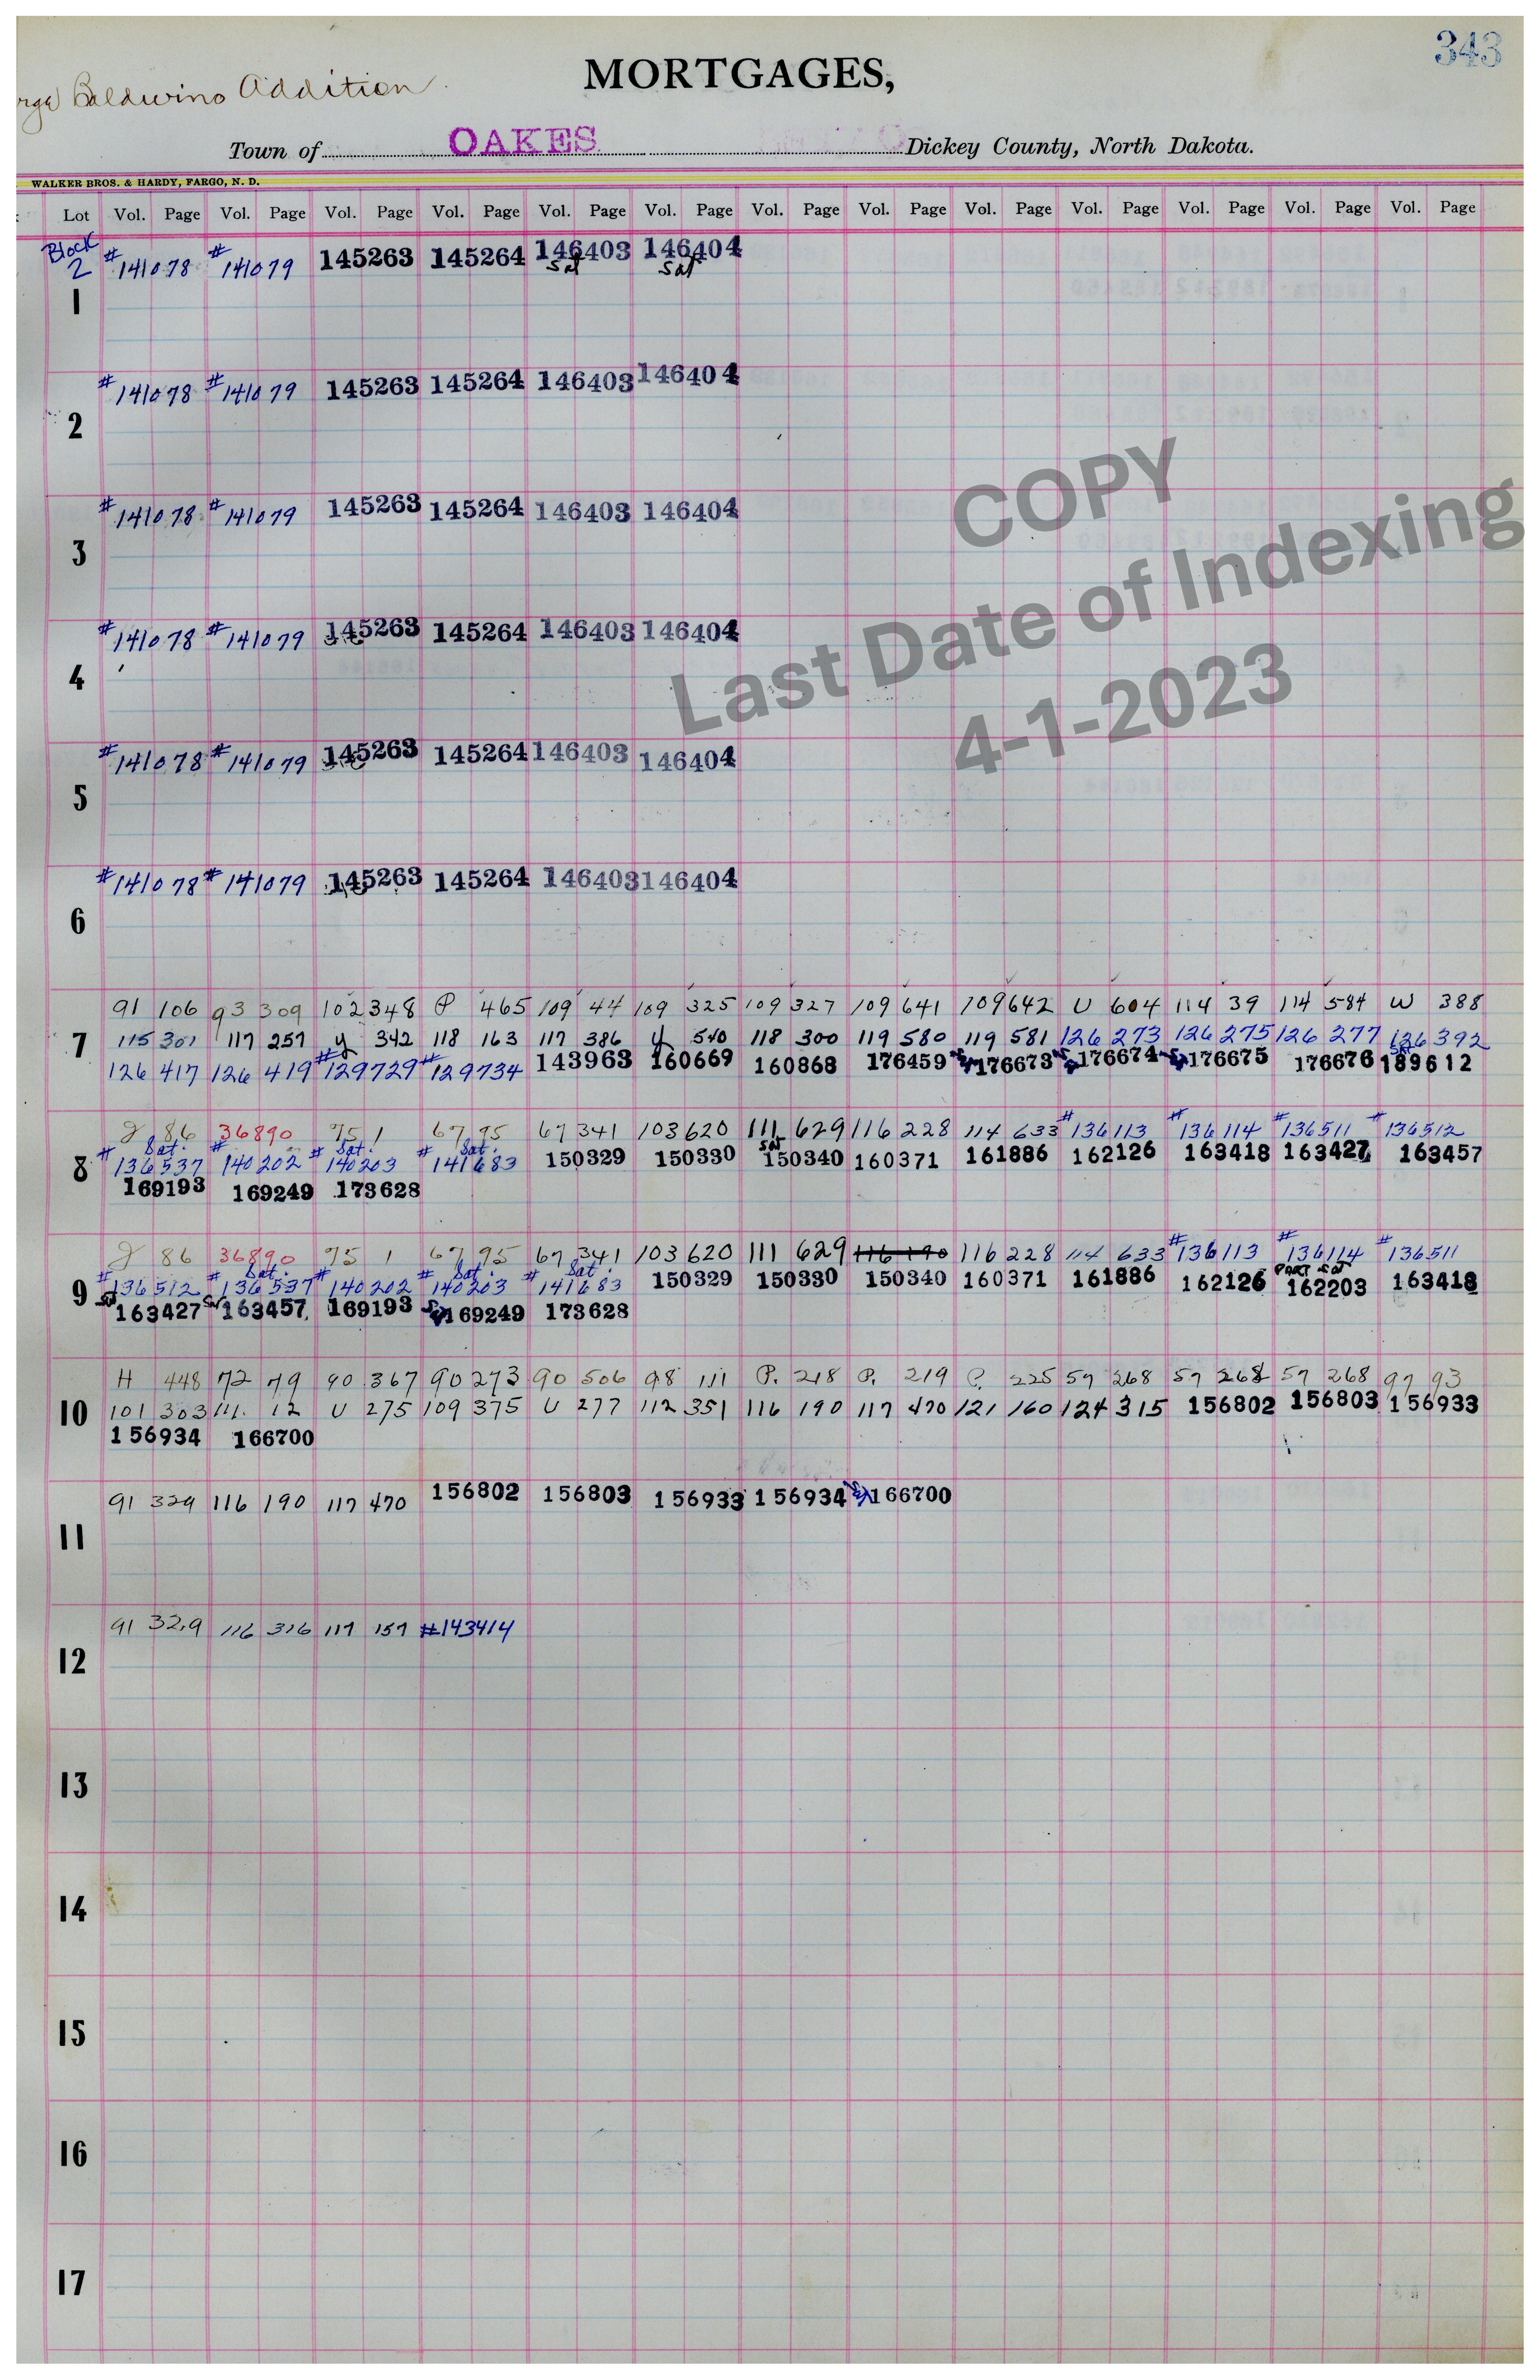 343
MORTGAGES,
Baldwins Addition
Town of OAKES Dickey County, North Dakota.
WALKER BROS. & HARDY, FARGO, N. D.
Lot Vol. Page Vol. Page Vol. Page Vol. Page Vol. Page Vol. Page Vol. Page Vol. Page Vol. Page Vol. Page Vol. Page Vol. Page Vol. Page
Block
2 #141078 #141079 145263 145264 146403 146404
Sat Sat
1
#141078 #141079 145263 145264 146403 146404
2
#141078 #141079 145263 145264 146403 146404
3
#141078 #141079 145263 145264 146403 146404
4
#141078 #141079 145263 145264 146403 146404
5
#141078 #141079 145263 145264 146403 146404
6
COPY
Last Date of Indexing
4-1-2023
91 106 93 309 102 348 P 465 109 44 109 325 109 327 109 641 109 642 U 604 114 39 114 584 W 388
7 115 301 117 257 y 342 118 163 117 386 y 540 118 300 119 580 119 581 126 273 126 275 126 277 126 392
126 417 126 419 #129729 #129734 143963 160669 160868 176459 176673 176674 176675 176676 Sat 189612
86 36890 75 1 67 95 67 341 103 620 111 629 116 228 114 633 #136113 #136114 #136511 #136512
Sat. Sat. Sat. Sat
8 #136537 #140202 #140203 #141683 150329 150330 150340 160371 161886 162126 163418 163427 163457
169193 169249 173628
86 36890 75 1 67 95 67 341 103 620 111 629 116 190 116 228 114 633 #136113 #136114 #136511
Sat. Sat Sat. PART Sat
9 #136512 #136537 #140202 #140203 #141683 150329 150330 150340 160371 161886 162126 162203 163418
Sat 163427 Sat 163457 169193 169249 173628
H 448 72 79 90 367 90 273 90 506 98 111 P. 218 P. 219 P. 225 57 268 57 268 57 268 97 93
10 101 303 111 12 U 275 109 375 U 277 112 351 116 190 117 470 121 160 124 315 156802 156803 156933
156934 166700
91 329 116 190 117 470 156802 156803 156933 156934 166700
11
91 329 116 316 117 157 #143414
12
13
14
15
16
17